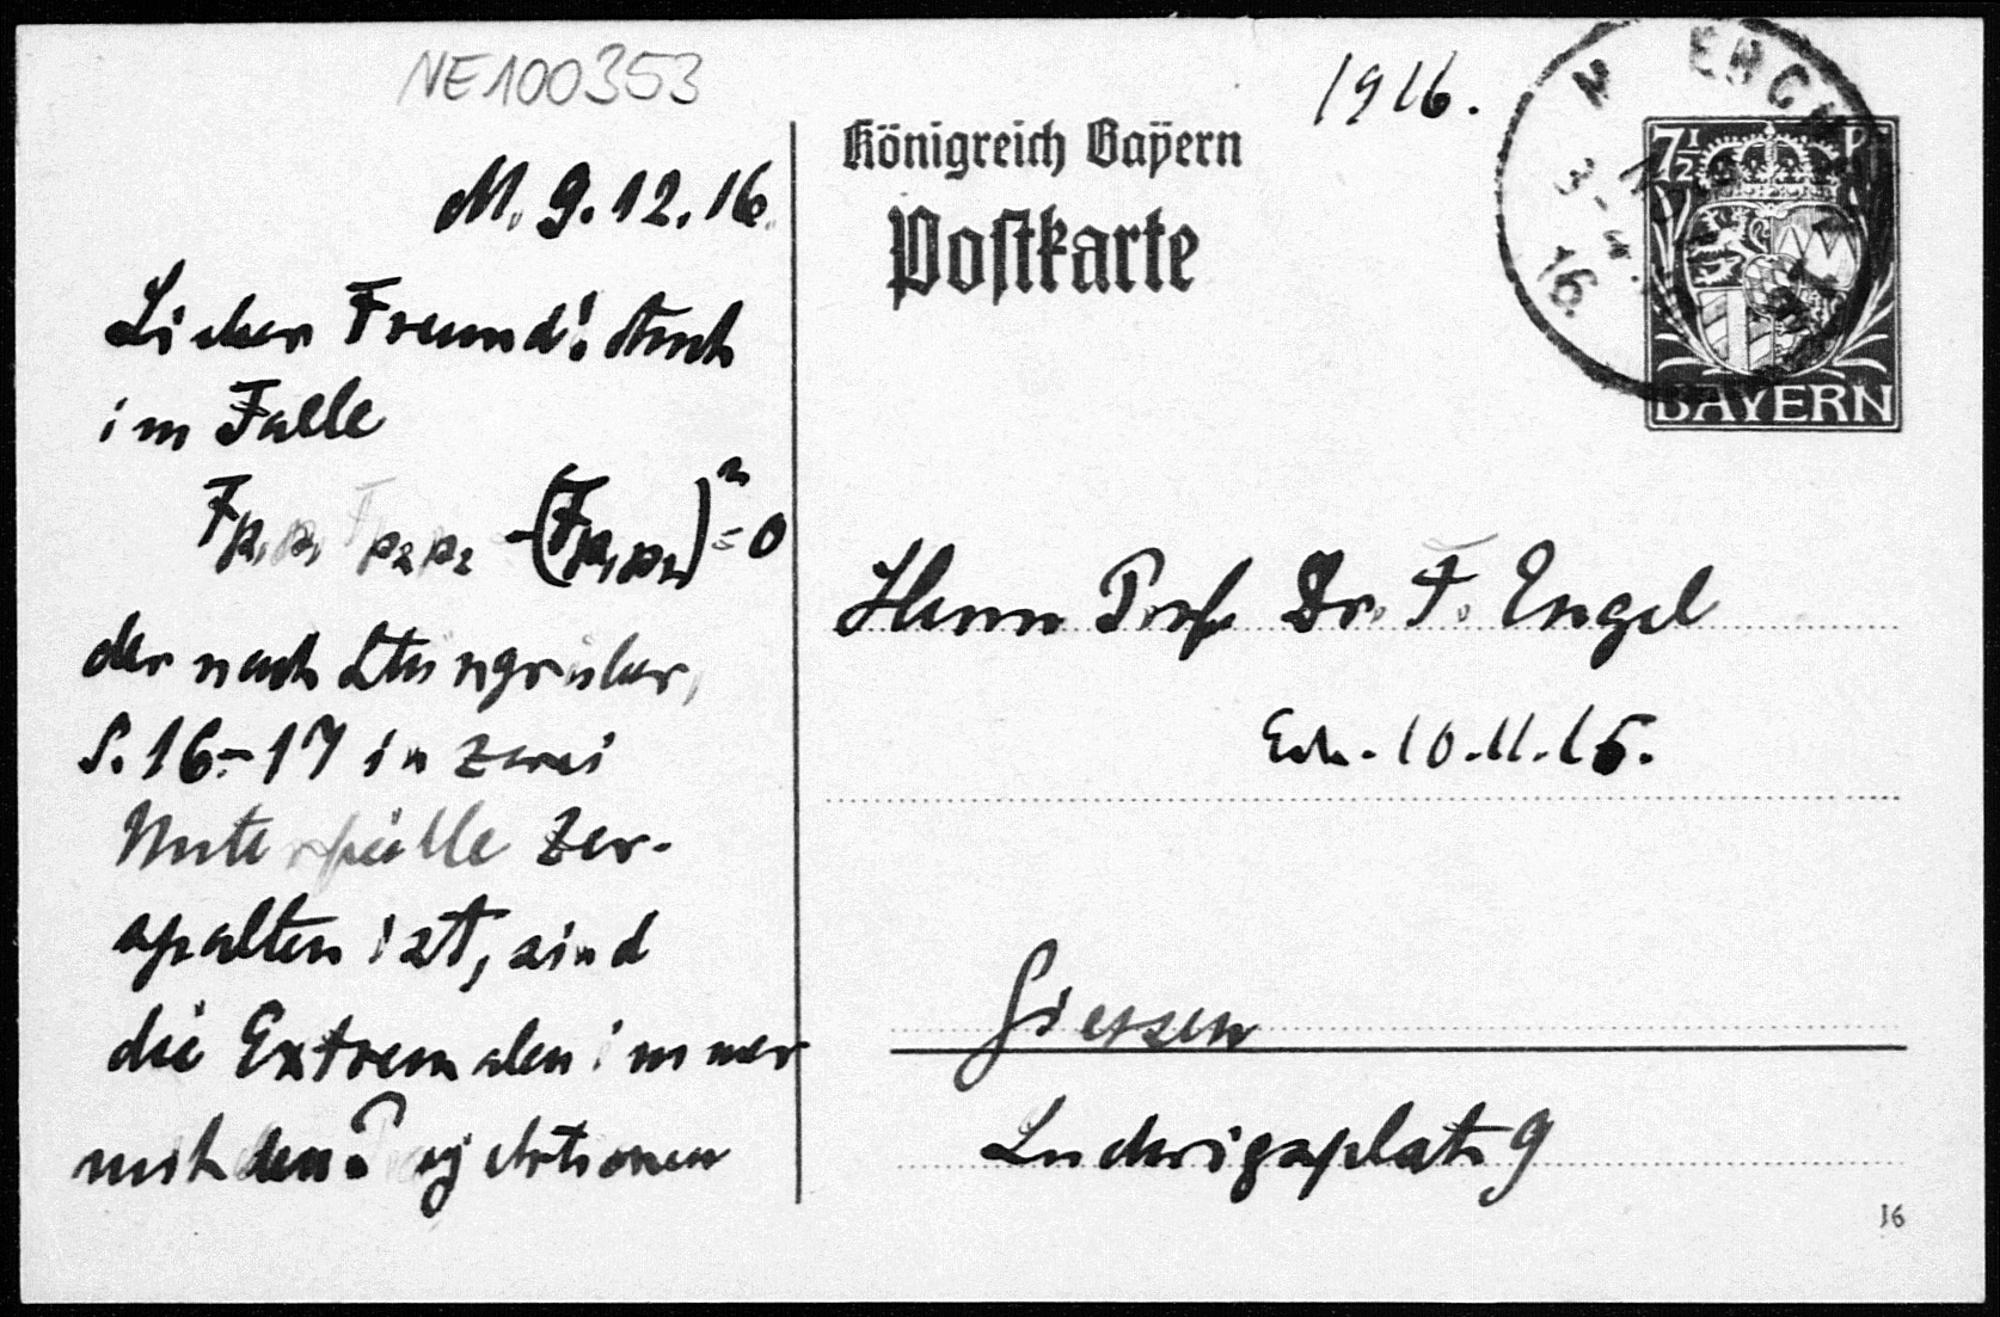 NE100353
M. 9.12.16.
Lieber Freund! Auch
im Falle
F_{p₁p₁} F_{p₂p₂} - (F_{p₁p₂})² = 0
der nach Stüngruber,
S. 16-17 in zwei
Unterfälle zer-
spalten ist, sind
die Extremalen immer
mit den Projektionen
1916.
Königreich Bayern
Postkarte
7½ Pf
BAYERN
3-4
16.
Herrn Prof. Dr. F. Engel
Erh. 10.11.16.
Giessen
Ludwigsplatz 9
16